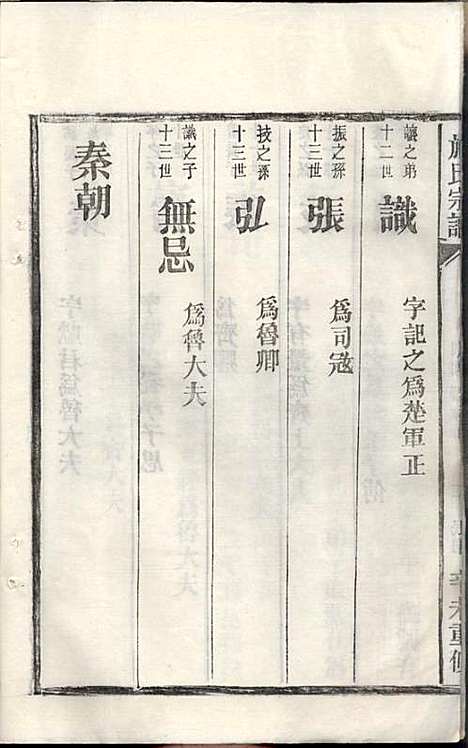 氏宗譜
重修
譏之弟
十二世
識
字記之爲楚軍正
振之孫
十三世
張
爲司寇
技之孫
十三世
弘
爲魯卿
識之子
十三世
無忌
爲魯大夫
秦朝